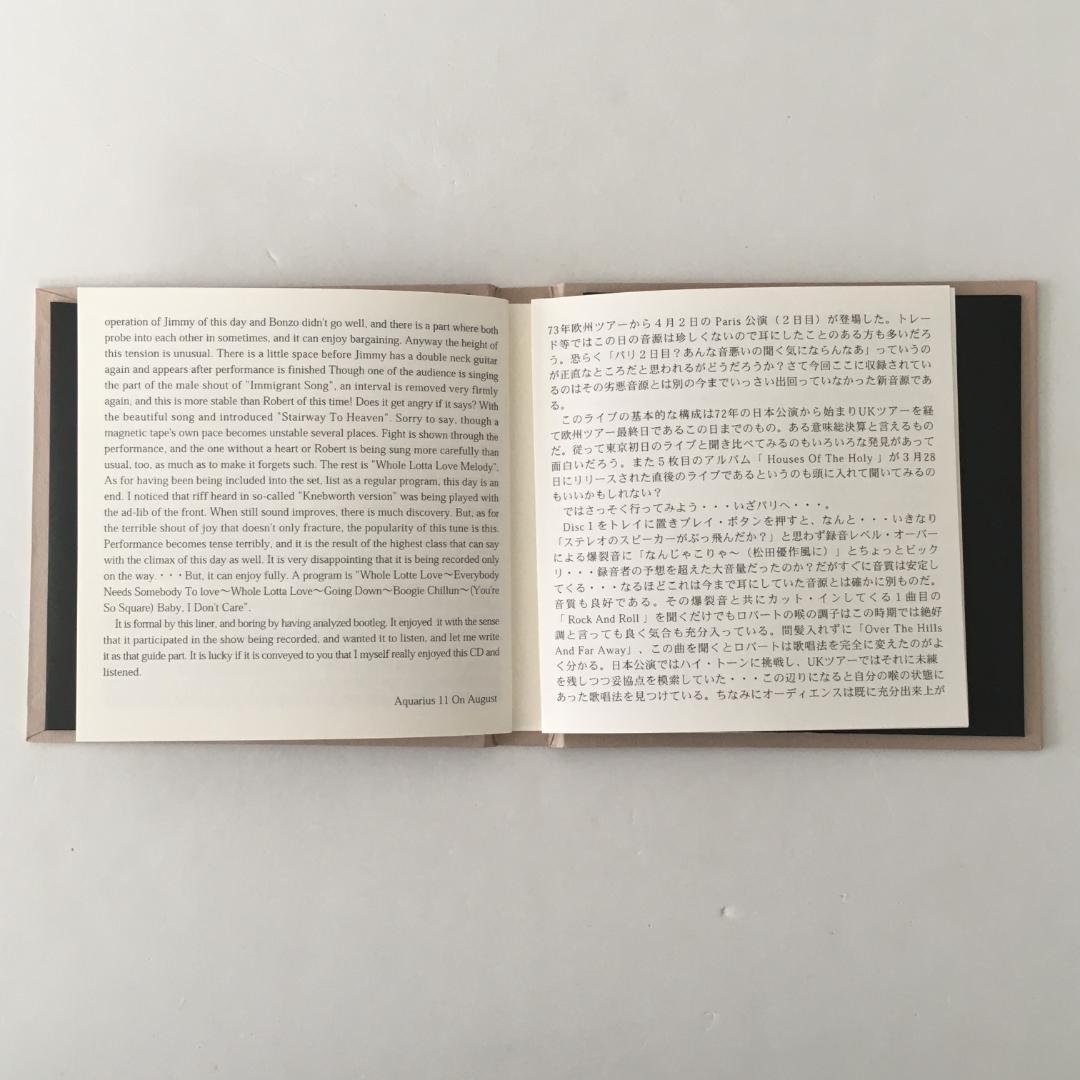 operation of Jimmy of this day and Bonzo didn't go well, and there is a part where both
probe into each other in sometimes, and it can enjoy bargaining. Anyway the height of
this tension is unusual. There is a little space before Jimmy has a double neck guitar
again and appears after performance is finished Though one of the audience is singing
the part of the male shout of "Immigrant Song", an interval is removed very firmly
again, and this is more stable than Robert of this time! Does it get angry if it says? With
the beautiful song and introduced "Stairway To Heaven". Sorry to say, though a
magnetic tape's own pace becomes unstable several places. Fight is shown through the
performance, and the one without a heart or Robert is being sung more carefully than
usual, too, as much as to make it forgets such. The rest is "Whole Lotta Love Melody".
As for having been being included into the set, list as a regular program, this day is an
end. I noticed that riff heard in so-called "Knebworth version" was being played with
the ad-lib of the front. When still sound improves, there is much discovery. But, as for
the terrible shout of joy that doesn't only fracture, the popularity of this tune is this.
Performance becomes tense terribly, and it is the result of the highest class that can say
with the climax of this day as well. It is very disappointing that it is being recorded only
on the way.・・・But, it can enjoy fully. A program is "Whole Lotte Love〜Everybody
Needs Somebody To love〜Whole Lotta Love〜Going Down〜Boogie Chillun〜(You're
So Square) Baby, I Don't Care".
It is formal by this liner, and boring by having analyzed bootleg. It enjoyed it with the sense
that it participated in the show being recorded, and wanted it to listen, and let me write
it as that guide part. It is lucky if it is conveyed to you that I myself really enjoyed this CD and
listened.
Aquarius 11 On August
73年欧州ツアーから4月2日の Paris 公演(2日目)が登場した。トレー
ド等ではこの日の音源は珍しくないので耳にしたことのある方も多いだろ
う。恐らく「パリ2日目?あんな音悪いの聞く気にならんなあ」っていうの
が正直なところだと思われるがどうだろうか?さて今回ここに収録されてい
るのはその劣悪音源とは別の今までいっさい出回っていなかった新音源であ
る。
このライブの基本的な構成は72年の日本公演から始まりUKツアーを経
て欧州ツアー最終日であるこの日までのもの。ある意味総決算と言えるもの
だ。従って東京初日のライブと聞き比べてみるのもいろいろな発見があって
面白いだろう。また5枚目のアルバム「 Houses Of The Holy 」が3月28
日にリリースされた直後のライブであるというのも頭に入れて聞いてみるの
もいいかもしれない?
ではさっそく行ってみよう・・・いざパリへ・・・。
Disc 1 をトレイに置きプレイ・ボタンを押すと、なんと・・・いきなり
「ステレオのスピーカーがぶっ飛んだか?」と思わず録音レベル・オーバー
による爆裂音に「なんじゃこりゃ〜(松田優作風に)」とちょっとビック
リ・・・録音者の予想を超えた大音量だったのか?だがすぐに音質は安定し
てくる・・・なるほどこれは今まで耳にしていた音源とは確かに別ものだ。
音質も良好である。その爆裂音と共にカット・インしてくる1曲目の
「 Rock And Roll 」を聞くだけでもロバートの喉の調子はこの時期では絶好
調と言っても良く気合も充分入っている。間髪入れずに「Over The Hills
And Far Away」、この曲を聞くとロバートは歌唱法を完全に変えたのがよ
く分かる。日本公演ではハイ・トーンに挑戦し、UKツアーではそれに未練
を残しつつ妥協点を模索していた・・・この辺りになると自分の喉の状態に
あった歌唱法を見つけている。ちなみにオーディエンスは既に充分出来上が